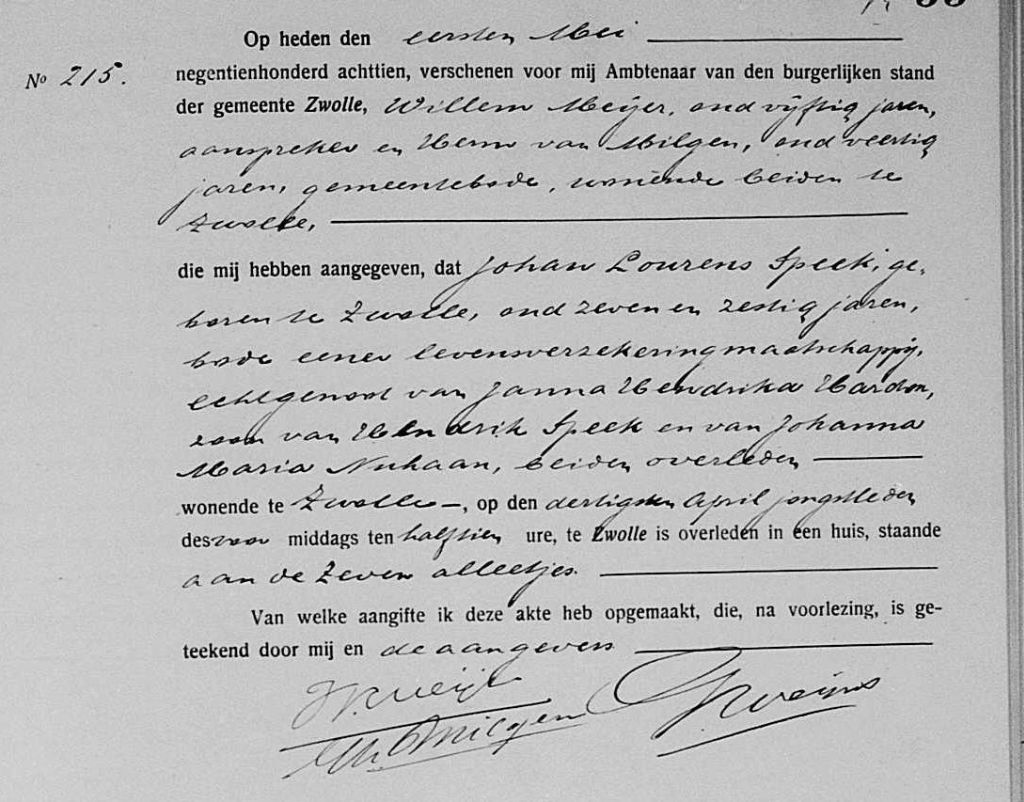 Op heden den eersten Mei
No 215.
negentienhonderd achttien, verschenen voor mij Ambtenaar van den burgerlijken stand
der gemeente Zwolle, Willem Meijer, oud vijftig jaren,
aanspreker en Harm van Milgen, oud veertig
jaren, gemeentebode, wonende beiden te
Zwolle,
die mij hebben aangegeven, dat Johan Lourens Speek, ge-
boren te Zwolle, oud zeven en zestig jaren,
bode eener levensverzekeringmaatschappij,
echtgenoot van Janna Hendrika Hardon,
zoon van Hendrik Speek en van Johanna
Maria Nuhaan, beiden overleden
wonende te Zwolle —, op den dertigsten April jongstleden
des voor middags ten half tien ure, te Zwolle is overleden in een huis, staande
aan de Zeven alleetjes.
Van welke aangifte ik deze akte heb opgemaakt, die, na voorlezing, is ge-
teekend door mij en de aangevers
Milgen